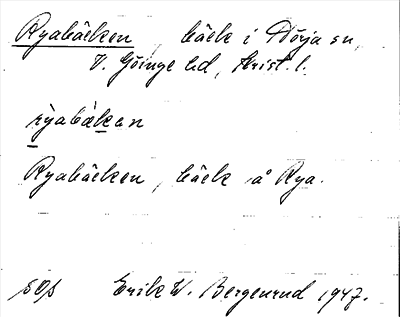 Ryabäcken, bäck i Norja sn,
V. Göinge hd, Krist. l.
rỳabäkan
Ryabäcken, bäck å Rya.
sos Erik W. Bergenrud 1947.